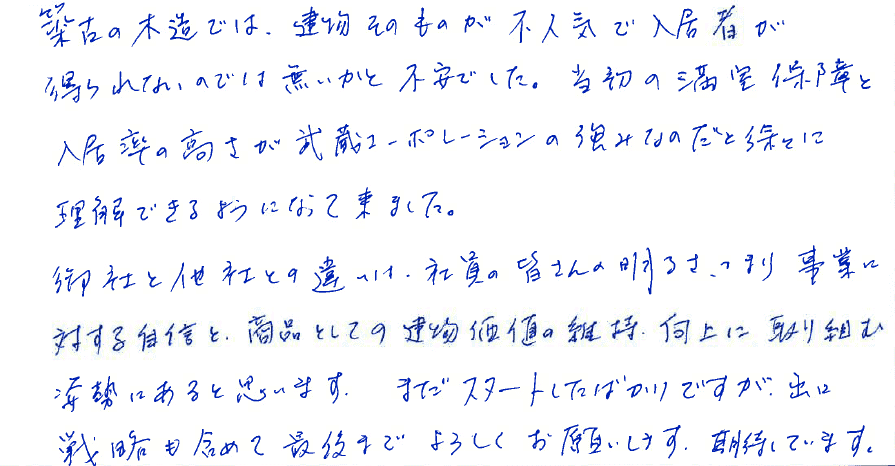 築古の木造では、建物そのものが不人気で入居者が
得られないのでは無いかと不安でした。当初の満室保障と
入居率の高さが武蔵コーポレーションの強みなのだと徐々に
理解できるようになって来ました。
御社と他社との違いは、社員の皆さんの明るさ、つまり事業に
対する自信と、商品としての建物価値の維持、向上に取り組む
姿勢にあると思います。まだスタートしたばかりですが、出口
戦略も含めて最後までよろしくお願いします。期待しています。